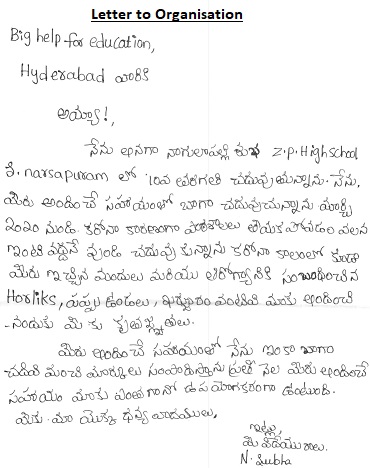 Letter to Organisation
Big help for education,
Hyderabad వారికి
అయ్యా!,
నేను అనగా నాగులాపల్లి శుభ Z.P. High school
J. narsapuram లో 10వ తరగతి చదువుతున్నాను. నేను,
మీరు అందించే సహాయంతో బాగా చదువుచున్నాను మార్చి
2020 నుండి కరోనా కారణంగా పాఠశాలలు తెరుచుకపోవడం వలన
ఇంటి వద్దనే వుండి చదువుకున్నాను కరోనా కాలంలో కూడా
మీరు ఇచ్చిన మందులు మరియు ఆరోగ్యానికి సంబంధించిన
Horliks, పప్పు ఉండలు, ఖర్జూరం వంటివి మాకు అందించి
-నందుకు మీకు కృతజ్ఞతలు.
మీరు అందించే సహాయంతో నేను ఇంకా బాగా
చదివి మంచి మార్కులు సంపాదిస్తాను ప్రతి నెల మీరు అందించే
సహాయం మాకు ఎంతగానో ఉపయోగకరంగా ఉంటుంది.
మీకు మా యొక్క ధన్యవాదములు,
ఇట్లు,
మీ విధేయురాలు.
N. Subha